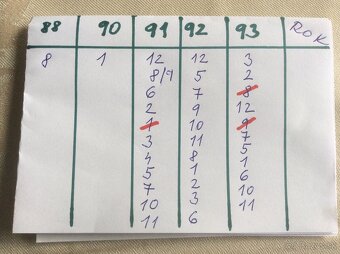 88 90 91 92 93 ROK
8 1 12 12 3
8/9 5 2
6 7 8
2 9 12
1 10 9
3 11 7
4 8 5
5 1 1
7 2 6
10 3 10
11 6 11